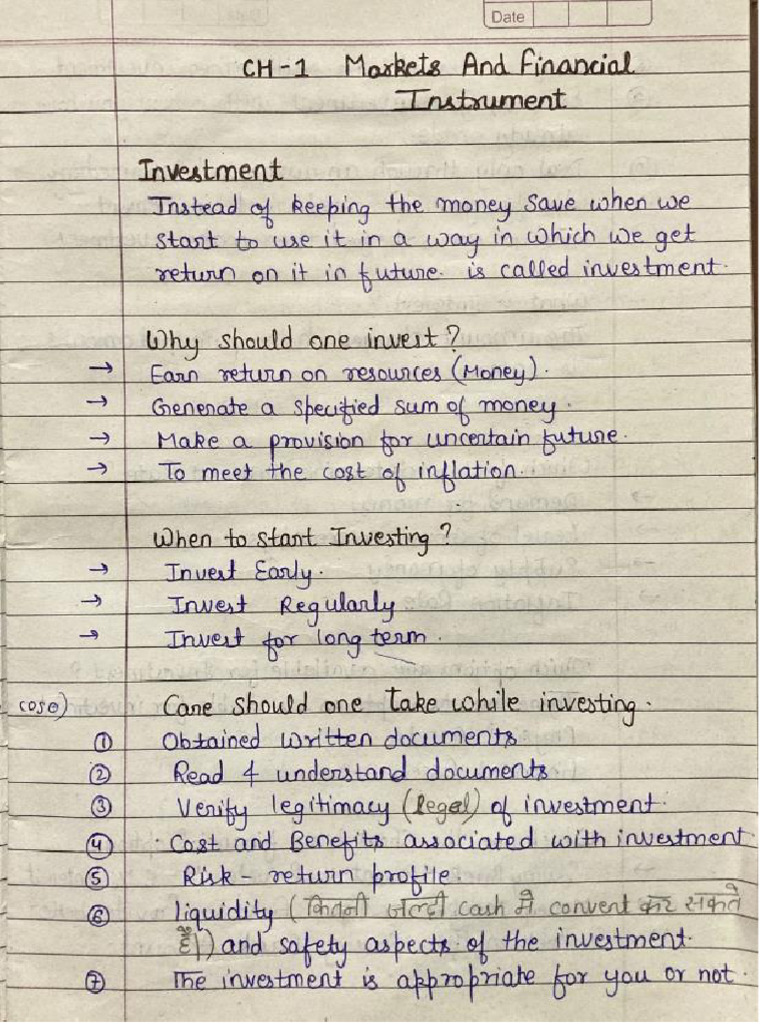 Date
CH-1 Markets And Financial
Instrument
Investment
Instead of keeping the money save when we
start to use it in a way in which we get
return on it in future. is called investment.
Why should one invest?
→ Earn return on resources (Money).
→ Generate a specified sum of money.
→ Make a provision for uncertain future.
→ To meet the cost of inflation.
When to start Investing?
→ Invest Early.
→ Invest Regularly
→ Invest for long term.
Care should one take while investing.
① Obtained written documents
② Read & understand documents
③ Verify legitimacy (legel) of investment.
④ Cost and Benefits associated with investment
⑤ Risk-return profile.
⑥ liquidity (कितनी जल्दी cash मै convent कर सकते
हैं।) and safety aspects of the investment.
⑦ The investment is appropriate for you or not.